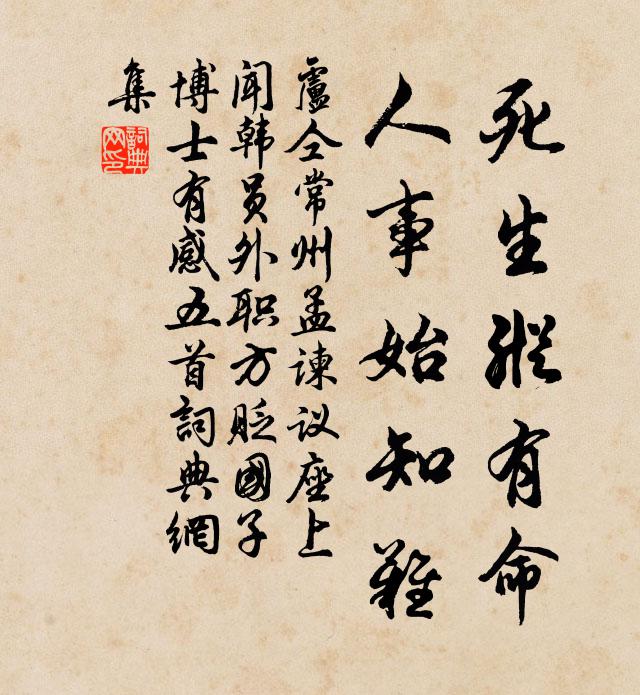 死生縱有命
人事始知難
盧仝常州孟谏议座上
闻韩员外职方貶國子
博士有感五首詞典網
集
詞典
网印